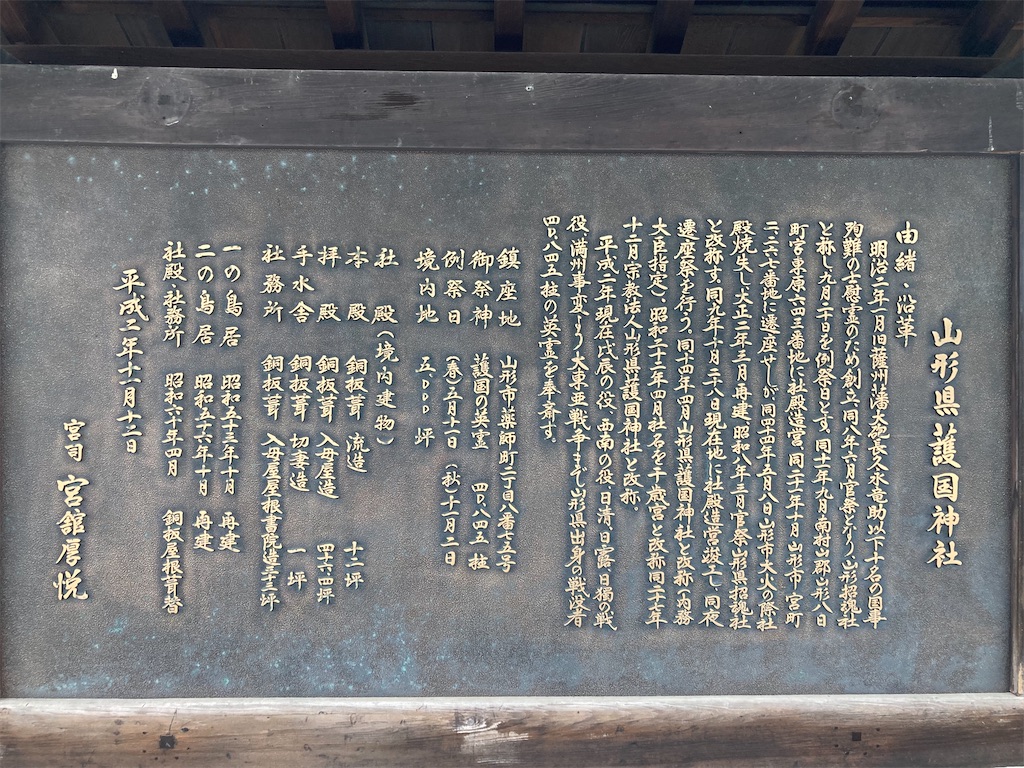 山形県護国神社
由緒・沿革
明治二年一月旧薩州藩大砲長久永竜助以下十名の国事
殉難の士慰霊のため創立同八年六月官祭となり山形招魂社
と称し九月二十日を例祭日とす。同十一年九月南村山郡山形八日
町宮東原六四三番地に社殿造営、同二十年十月山形市宮町
二、二六七番地に遷座せしが、同四十四年五月八日山形市大火の際社
殿焼失し大正二年三月再建、昭和八年三月官祭山形県招魂社
と改称す。同九年十月二八日現在地に社殿造営竣工し同夜
遷座祭を行う。同十四年四月山形県護国神社と改称(内務
大臣指定)、昭和二十二年四月社名を千歳宮と改称同二十七年
十二月宗教法人山形県護国神社と改称。
平成二年現在戊辰の役、西南の役日清、日露、日独の戦
役、満州事変より大東亜戦争まで山形県出身の戦没者
四〇、八四五柱の英霊を奉斎す。
鎮座地 山形市薬師町二丁目八番七五号
御祭神 護国の英霊 四〇、八四五柱
例祭日 (春)五月十一日 (秋)十一月二日
境内地 五〇〇〇坪
社殿(境内建物)
本殿 銅板葺 流造 十二坪
拝殿 銅板葺 入母屋造 四六・四坪
手水舎 銅板葺 切妻造 一坪
社務所 銅板葺 入母屋屋根書院造三十三坪
一の鳥居 昭和五十三年十月 再建
二の鳥居 昭和五十六年十月 再建
社殿・社務所 昭和六十年四月 銅板屋根葺替
平成二年十一月十二日
宮司 宮舘厚悦